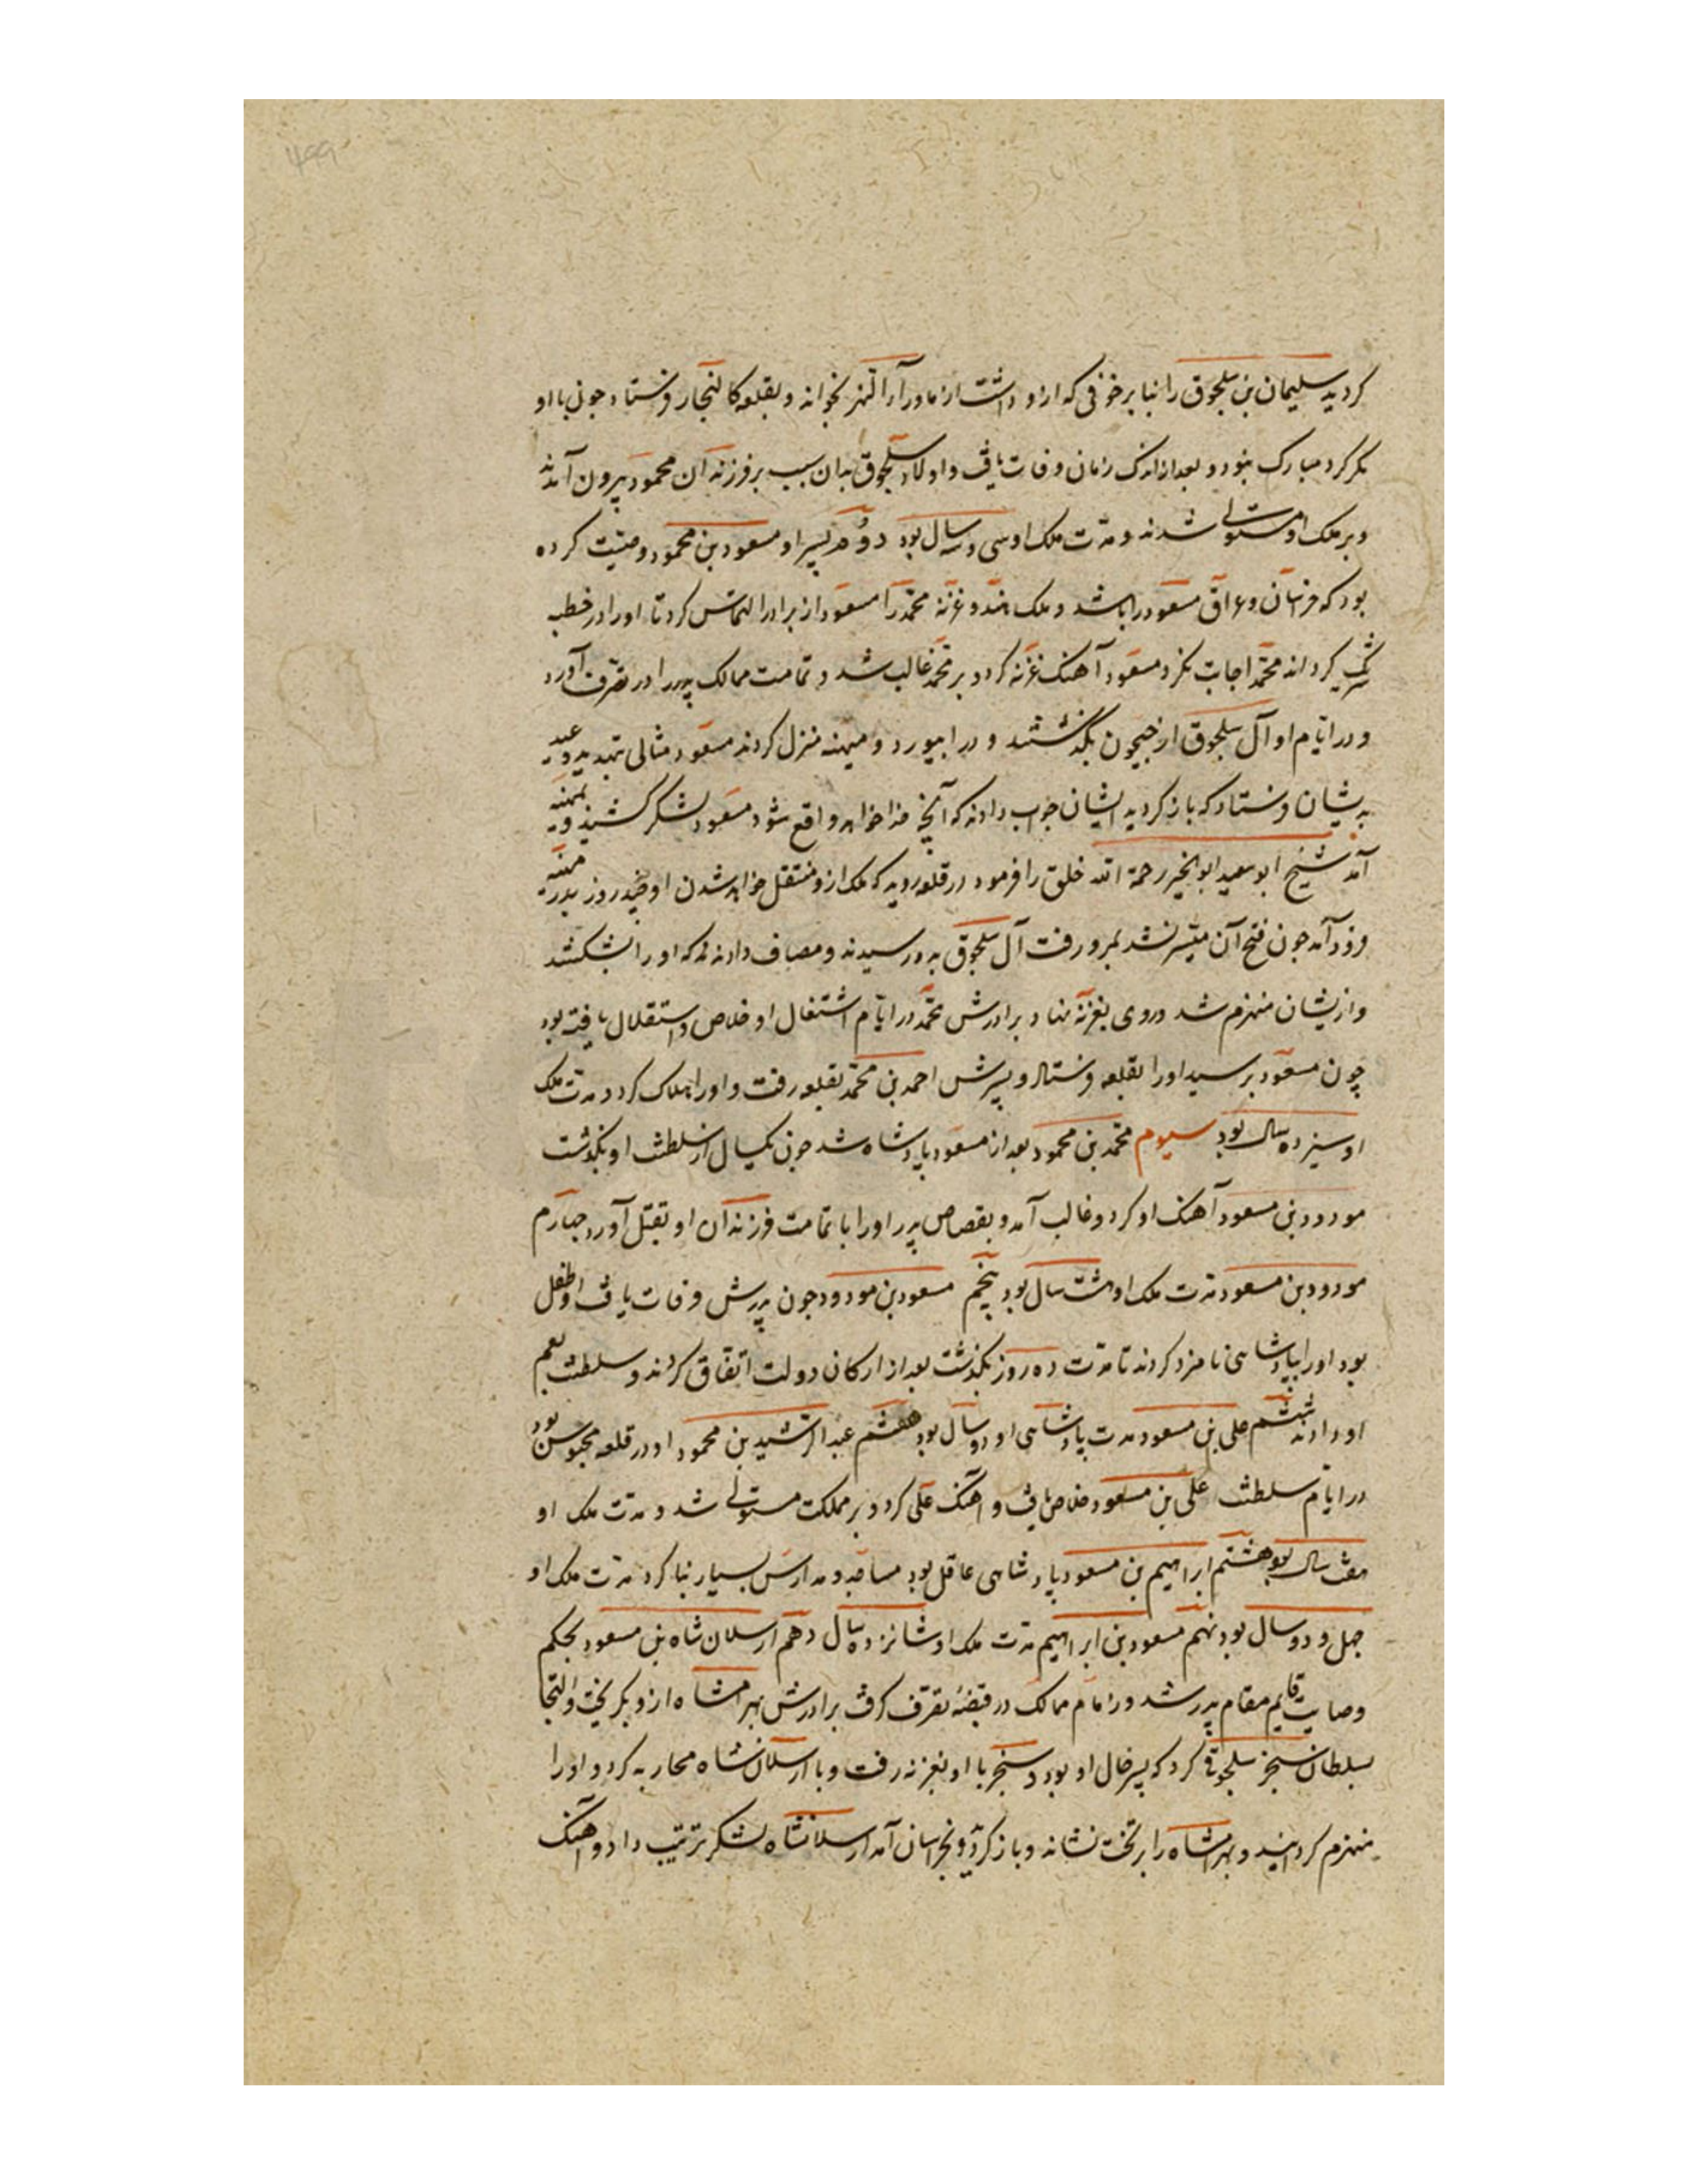 کردید سلیمان بن سلجوق را بنا بر خوفی که ازو داشت از ماورآرا النهر بخواند و بقلعه کالنجار فرستاد جون با او
مکر کرد مبارک نبود و بعد از اندک زمان وفات یافت و اولاد سلجوق بدان سبب بر فرزندان محمود بیرون آمدند
و بر ملک او مستولی شدند و مدّت ملک او سی و سه سال بود دوّم پسر او مسعود بن محمود وصیّت کرده
بود که خراسان و عراق مسعود را باشد و ملک هند و غزنه محمّد را مسعود از برادر التماس کرد تا او را در خطبه
شریک کرداند محمّد اجابت نکرد مسعود آهنک غزنه کرد و بر محمّد غالب شد و تمامت ممالک پدر را در تصرّف آورد
و در ایّام او آل سلجوق از جیحون بگذشتند و در ابیورد و میهنه منزل کردند مسعود مثالی بتهدید و وعید
بدیشان فرستاد که باز کردید ایشان جواب دادند که آنچه خدا خواهد واقع شود مسعود لشکر کشید و بمیهنه
آمد شیخ ابو سعید ابو الخیر رحمة الله خلق را فرمود در قلعه روید که ملک ازو منتقل خواهد شدن او چند روز بدر میهنه
فرود آمد جون فتح آن میّسر نشد بمرو رفت آل سلجوق بدو رسیدند و مصاف دادند او را بشکستند
و ازیشان منهزم شد و روی بغزنه نهاد برادرش محمّد در ایّام اشتغال او خلاص و استقلال یافته بود
چون مسعود برسید او را بقلعه فرستاد و پسرش احمد بن محمّد بقلعه رفت و او را هلاک کرد و مدّت ملک
او سیزده سال بود سیوم محمّد بن محمود بعد از مسعود پادشاه شد جون یکسال از سلطنت او بگذشت
مودود بن مسعود آهنک او کرد و غالب آمد و بقصاص پدر او را با تمامت فرزندان او بقتل آورد جهارم
مودود بن مسعود مدّت ملک او هشت سال بود پنجم مسعود بن مودود جون پدرش وفات یافت او طفل
بود او را بپادشاهی نامزد کردند تا مدّت ده روز بگذشت بعد از ارکان دولت اتّفاق کردند و سلطنت بعم
او دادند ششم علی بن مسعود مدت پادشاهی او دو سال بود هفتم عبد الرّشید بن محمود او در قلعه محبوس بود
در ایّام سلطنت علی بن مسعود خلاص یافت و آهنک علی کرد و بر مملکت مستولی شد و مدّت ملک او
هفت سال بود هشتم ابراهیم بن مسعود پادشاهی عاقل بود مساجد و مدارس بسیار بنا کرد مدّت ملک او
جهل و دو سال بود نهم مسعود بن ابراهیم مدّت ملک او شانزده سال دهم ارسلان شاه بن مسعود بحکم
وصایت قایم مقام پدر شد و زمام ممالک در قبضهٔ تصرّف کرفت برادرش بهرامشاه ازو بکریخت و التجا
بسلطان سنجر سلجوقی کرد که پسر خال او بود و سنجر با او بغزنه رفت و با ارسلانشاه محاربه کرد و او را
منهزم کردانید و بهرامشاه را بر تخت نشاند و باز کردید و بخراسان آمد ارسلانشاه لشکر ترتیب داد و آهنک